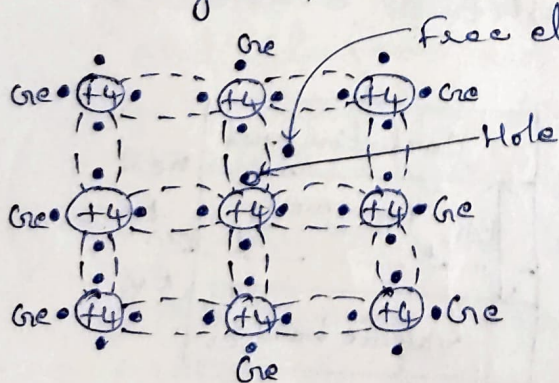 Ge
Free el
Ge +4 +4 +4 Ge
Hole
Ge +4 +4 +4 Ge
Ge +4 +4 +4 Ge
Ge